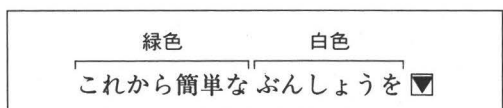 緑色 白色
これから簡単な ぶんしょうを▼